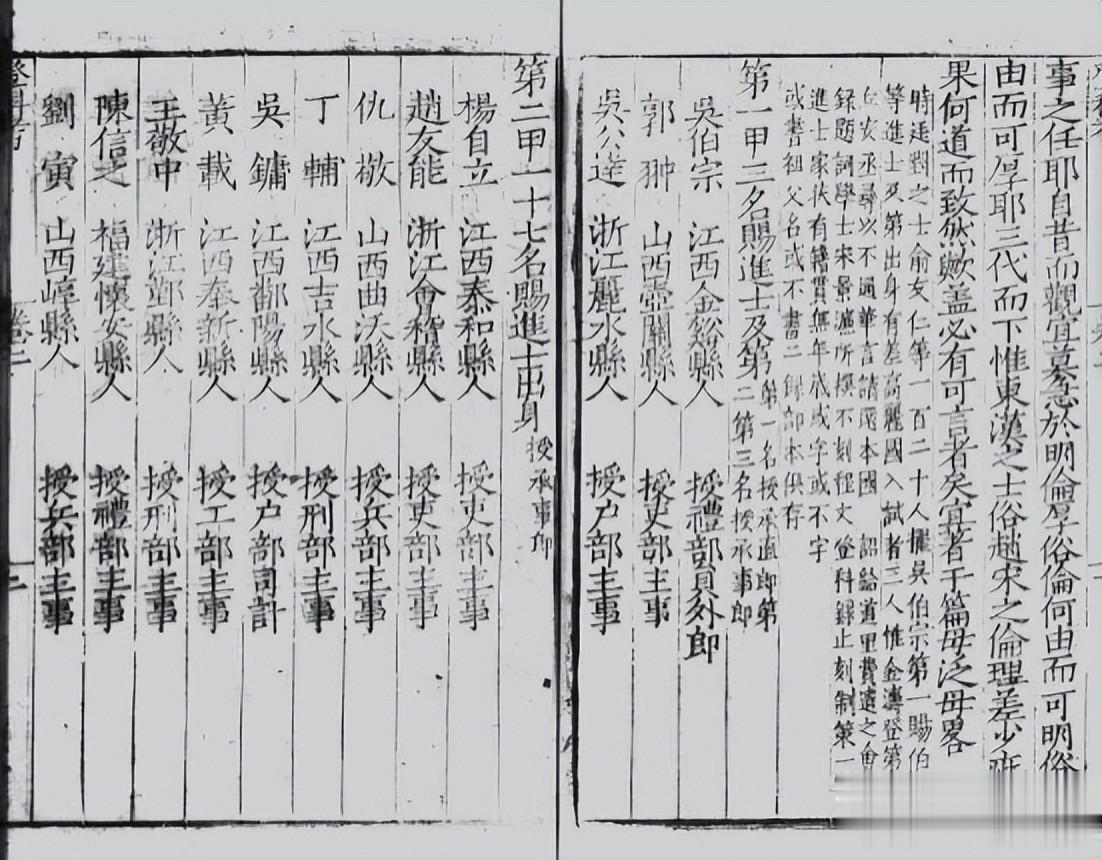 事之任耶自昔而觀宜莫急於明倫厚俗倫何由而可明俗
由而可厚耶三代而下惟東漢之士俗趙宋之倫理差少疵
果何道而致然歟盖必有可言者矣宜著于篇毋泛毋畧
時廷對之士俞友仁等一百二十人擢吳伯宗第一賜伯
等進士及第出身有差高麗國入試者三人惟金濤登第
丘安丞尋以不通華言請還本國 詔給道里費遣之
録題詞學士宋景濂所撰不刻程文登科録止刻制策一
進士家狀有籍貫無年歲或字或不字
或書祖父名或不書二録部本俱存
第一甲三名賜進士及第 第一名授承直郎第二第三名授承事郎
吳伯宗 江西金谿縣人 授禮部員外郎
郭翀 山西壺關縣人 授吏部主事
吳公達 浙江麗水縣人 授户部主事
第二甲一十七名賜進士出身 授承事郎
楊自立 江西泰和縣人 授吏部主事
趙友能 浙江會稽縣人 授吏部主事
仇敬 山西曲沃縣人 授兵部主事
丁輔 江西吉水縣人 授刑部主事
吳鏞 江西鄱陽縣人 授户部司計
黃載 江西奉新縣人 授工部主事
王敬中 浙江鄞縣人 授刑部主事
陳信之 福建懷安縣人 授禮部主事
劉寅 山西崞縣人 授兵部主事
卷二